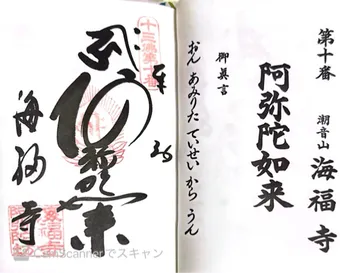 第十番
潮音山 海福寺
阿弥陀如来
御真言
おん あみりた ていせい から うん
十三佛第十番
奉拝
阿弥陀如来
海福寺
CamScannerでスキャン